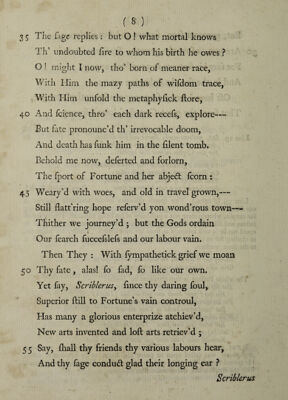 ( 8 )
35 The ſage replies : but O ! what mortal knows
Th' undoubted ſire to whom his birth he owes ?
O ! might I now, tho' born of meaner race,
With Him the mazy paths of wiſdom trace,
With Him unfold the metaphyſick ſtore,
40 And ſcience, thro' each dark receſs, explore---
But fate pronounc'd th' irrevocable doom,
And death has ſunk him in the ſilent tomb.
Behold me now, deſerted and forlorn,
The ſport of Fortune and her abject ſcorn :
45 Weary'd with woes, and old in travel grown,---
Still flatt'ring hope reſerv'd yon wond'rous town---
Thither we journey'd ; but the Gods ordain
Our ſearch ſucceſsleſs and our labour vain.
Then They : With ſympathetick grief we moan
50 Thy fate, alas! ſo ſad, ſo like our own.
Yet ſay, Scriblerus, ſince thy daring ſoul,
Superior ſtill to Fortune's vain controul,
Has many a glorious enterprize atchiev'd,
New arts invented and loſt arts retriev'd ;
55 Say, ſhall thy friends thy various labours hear,
And thy ſage conduct glad their longing ear ?
Scriblerus